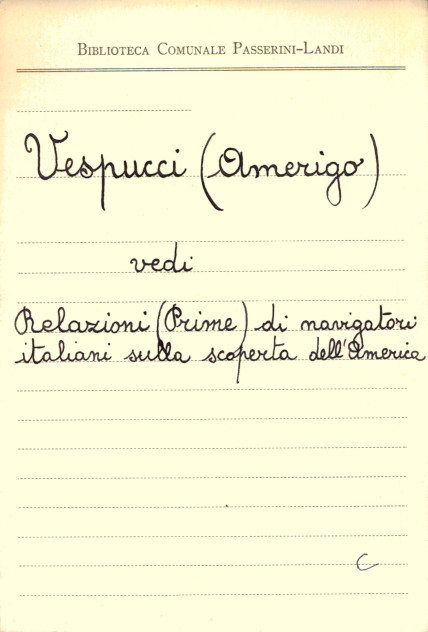 Biblioteca Comunale Passerini-Landi
Vespucci (Amerigo)
vedi
Relazioni (Prime) di navigatori
italiani sulla scoperta dell'America
C